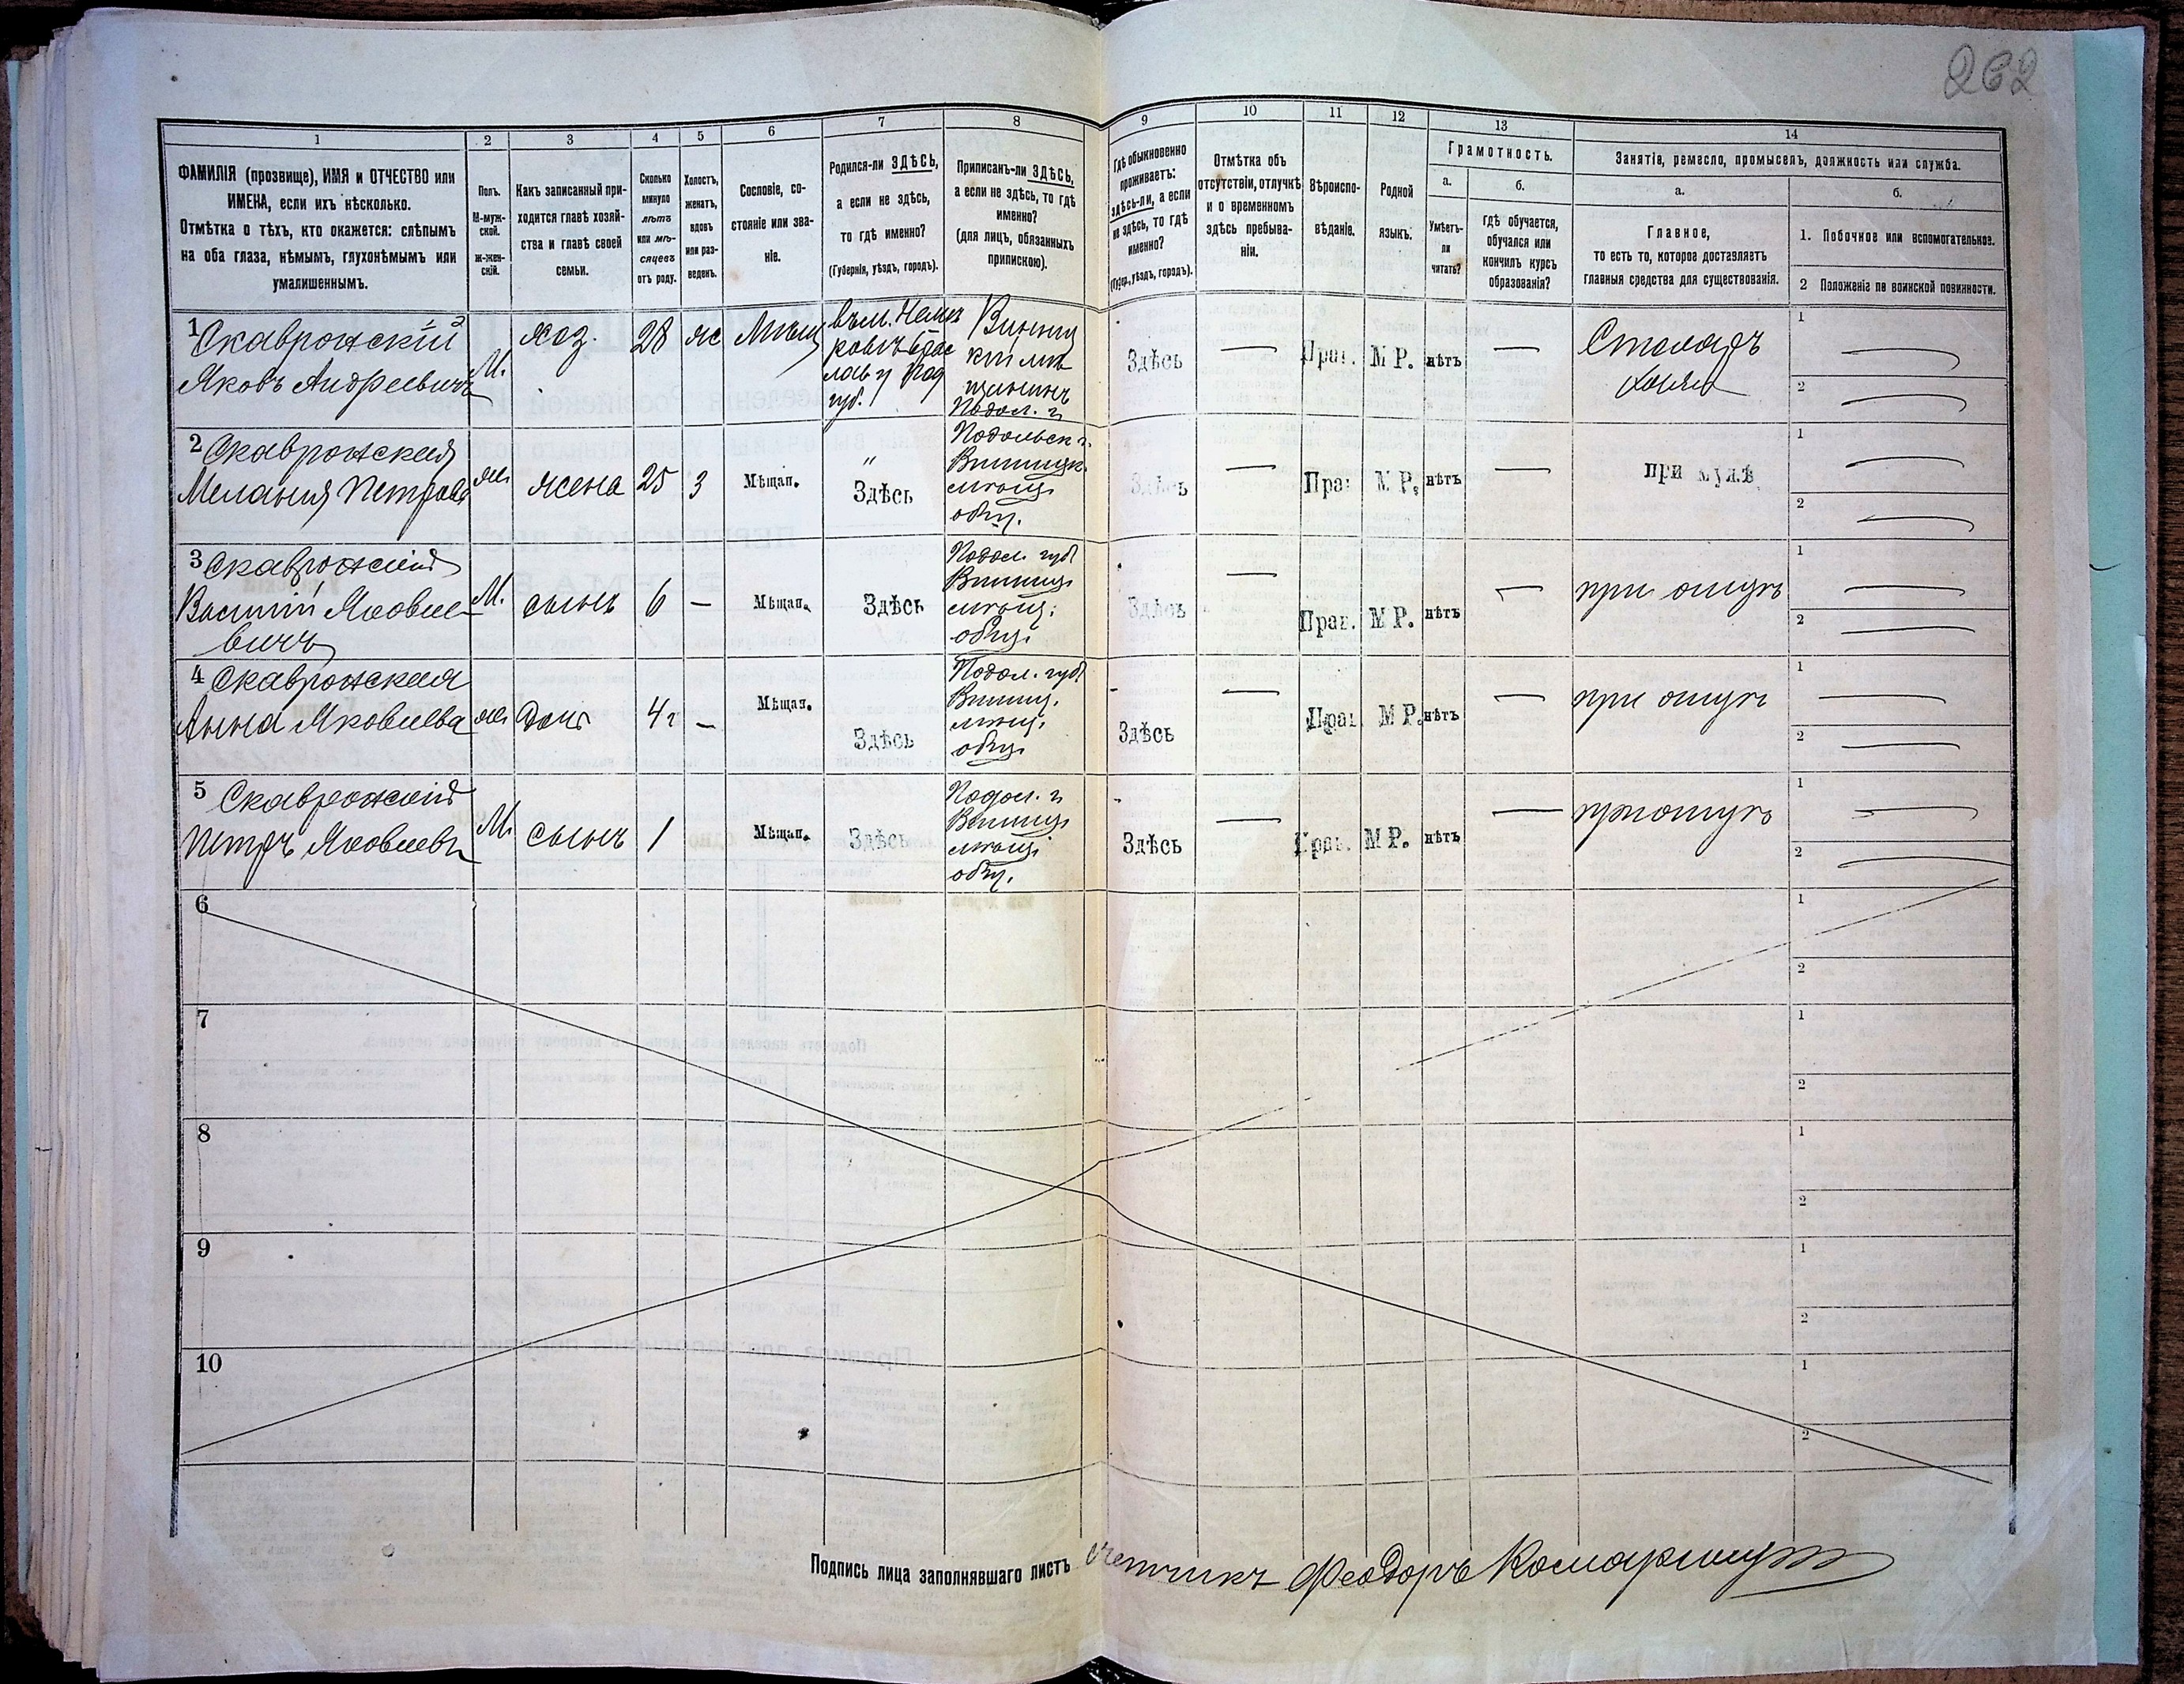 262
1 2 3 4 5 6 7 8 9 10 11 12 13 14
ФАМИЛІЯ (прозвище), ИМЯ и ОТЧЕСТВО или
ИМЕНА, если ихъ нѣсколько.
Отмѣтка о тѣхъ, кто окажется: слѣпымъ
на оба глаза, нѣмымъ, глухонѣмымъ или
умалишеннымъ.
Полъ.
М-муж-
ской.
Ж-жен-
скій.
Какъ записанный при-
ходится главѣ хозяй-
ства и главѣ своей
семьи.
Сколько
минуло
лѣтъ
или мѣ-
сяцевъ
отъ роду.
Холостъ,
женатъ,
вдовъ
или раз-
веденъ.
Сословіе, со-
стояніе или зва-
ніе.
Родился-ли ЗДѢСЬ,
а если не здѣсь,
то гдѣ именно?
(Губернія, уѣздъ, городъ).
Приписанъ-ли ЗДѢСЬ,
а если не здѣсь, то гдѣ
именно?
(для лицъ, обязанныхъ
припискою).
Гдѣ обыкновенно
проживаетъ:
здѣсь-ли, а если
не здѣсь, то гдѣ
именно?
(Губер., уѣздъ, городъ).
Отмѣтка объ
отсутствіи, отлучкѣ
и о временномъ
здѣсь пребыва-
ніи.
Вѣроиспо-
вѣданіе.
Родной
языкъ.
Грамотность.
а.
Умѣетъ-
ли
читать?
б.
гдѣ обучается,
обучался или
кончилъ курсъ
образованія?
Занятіе, ремесло, промыселъ, должность или служба.
а.
Главное,
то есть то, которое доставляетъ
главныя средства для существованія.
б.
1. Побочное или вспомогательное.
2 Положеніе по воинской повинности.
1 Скавронскій
Яковъ Андреевичъ
М.
хоз.
28
ж
Мѣщ
Подол. г
Здѣсь
—
Прав.
М Р.
нѣтъ
—
Столяръ
1
2
2 Скавронская
Меланія Петрова
ж.
жена
25
З
Мѣщан.
"
Здѣсь
Подольск г.
Винницк.
мѣщ.
общ.
Здѣсь
—
Прав
М Р.
нѣтъ
—
при мужѣ
1
2
3 Скавронскій
Василій Яковле-
вичъ
М.
сынъ
6
—
Мѣщан.
Здѣсь
Подол. губ
Винниц.
мѣщ.
общ.
Здѣсь
—
Прав.
М Р.
нѣтъ
—
при отцѣ
1
2
4 Скавронская
Анна Яковлева
ж.
дочь
4 г
—
Мѣщан.
Здѣсь
Подол. губ
Винниц.
мѣщ.
общ.
Здѣсь
—
Прав
М Р.
нѣтъ
—
при отцѣ
1
2
5 Скавронскій
Петръ Яковлевъ
М.
сынъ
1
Мѣщан.
Здѣсь
Подол. г
Винниц
мѣщ
общ.
Здѣсь
—
Прав.
М Р.
нѣтъ
—
при отцѣ
1
2
6
1
2
7
1
2
8
1
2
9
1
2
10
1
2
Подпись лица заполнявшаго листъ Счетчикъ Феодоръ